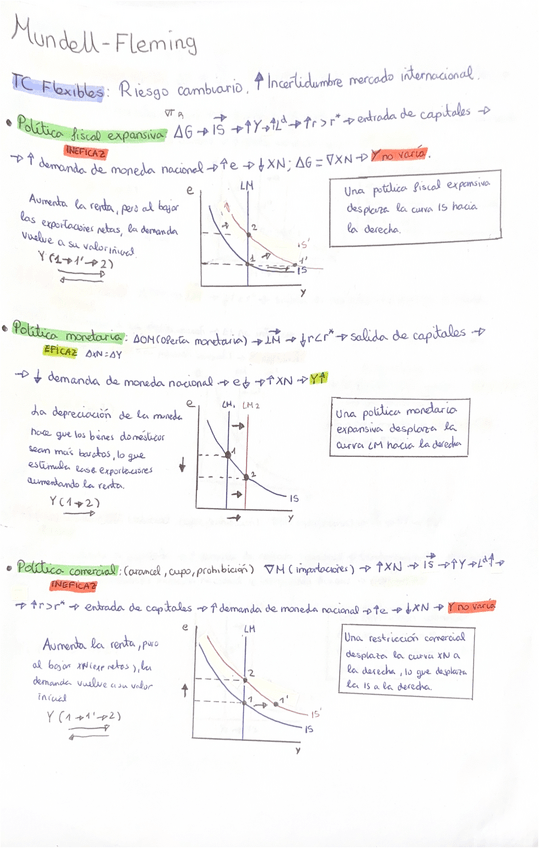 Mundell-Fleming
TC Flexibles: Riesgo cambiario. ↑ Incertidumbre mercado internacional.
• Política fiscal expansiva ΔG → IS → ↑Y → ↑Lᵈ → ↑r > r* → entrada de capitales →
INEFICAZ
→ ↑ demanda de moneda nacional → ↑e → ↓XN; ΔG = ∇XN → Y no varía.
Aumenta la renta, pero al bajar
las exportaciones netas, la demanda
vuelve a su valor inicial
Y (1→1'→2)
e
LM
2
IS'
1
1'
IS
Y
Una política fiscal expansiva
desplaza la curva IS hacia
la derecha.
• Política monetaria: ΔOM (oferta monetaria) → LM → ↓r < r* → salida de capitales →
EFICAZ ΔXN = ΔY
→ ↓ demanda de moneda nacional → e↓ → ↑XN → Y↑
La depreciación de la moneda
hace que los bienes domésticos
sean más baratos, lo que
estimula las exportaciones
aumentando la renta.
Y (1→2)
e
LM₁ LM2
1
2
IS
Y
Una política monetaria
expansiva desplaza la
curva LM hacia la derecha
• Política comercial: (arancel, cupo, prohibición) ∇M (importaciones) → ↑XN → IS → ↑Y → Lᵈ↑ →
INEFICAZ
→ ↑r > r* → entrada de capitales → ↑ demanda de moneda nacional → ↑e → ↓XN → Y no varía
Aumenta la renta, pero
al bajar XN (exp netas), la
demanda vuelve a su valor
inicial
Y (1→1'→2)
e
LM
2
1
1'
IS'
IS
Y
Una restricción comercial
desplaza la curva XN a
la derecha, lo que desplaza
la IS a la derecha.